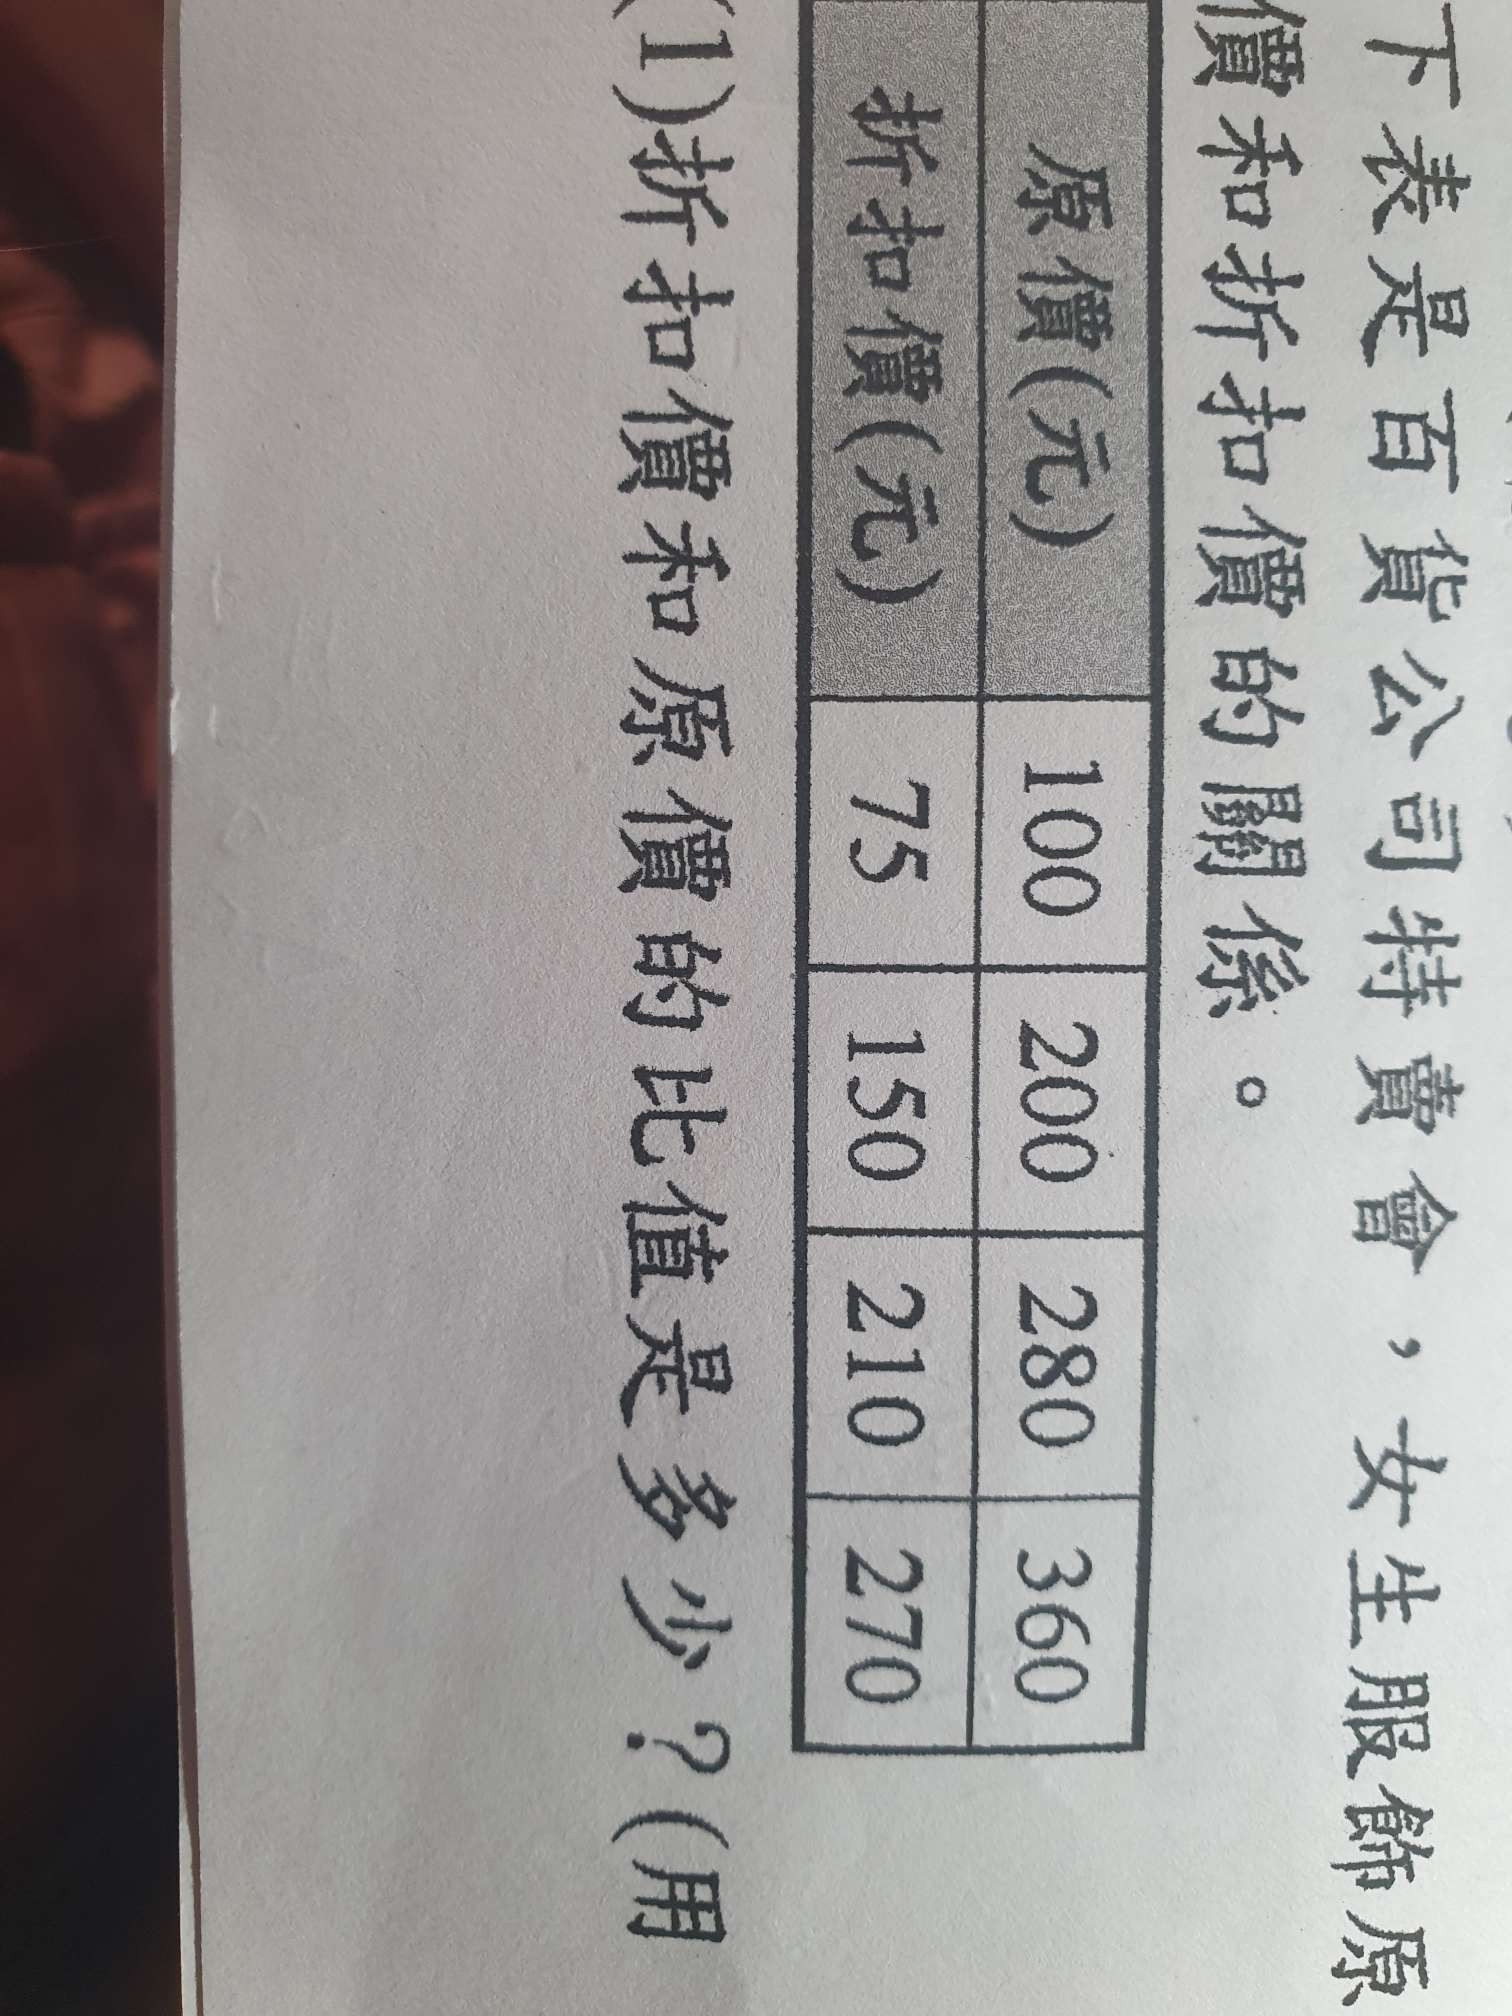 下表是百貨公司特賣會，女生服飾原
價和折扣價的關係。
原價(元) 100 200 280 360
折扣價(元) 75 150 210 270
(1)折扣價和原價的比值是多少？(用